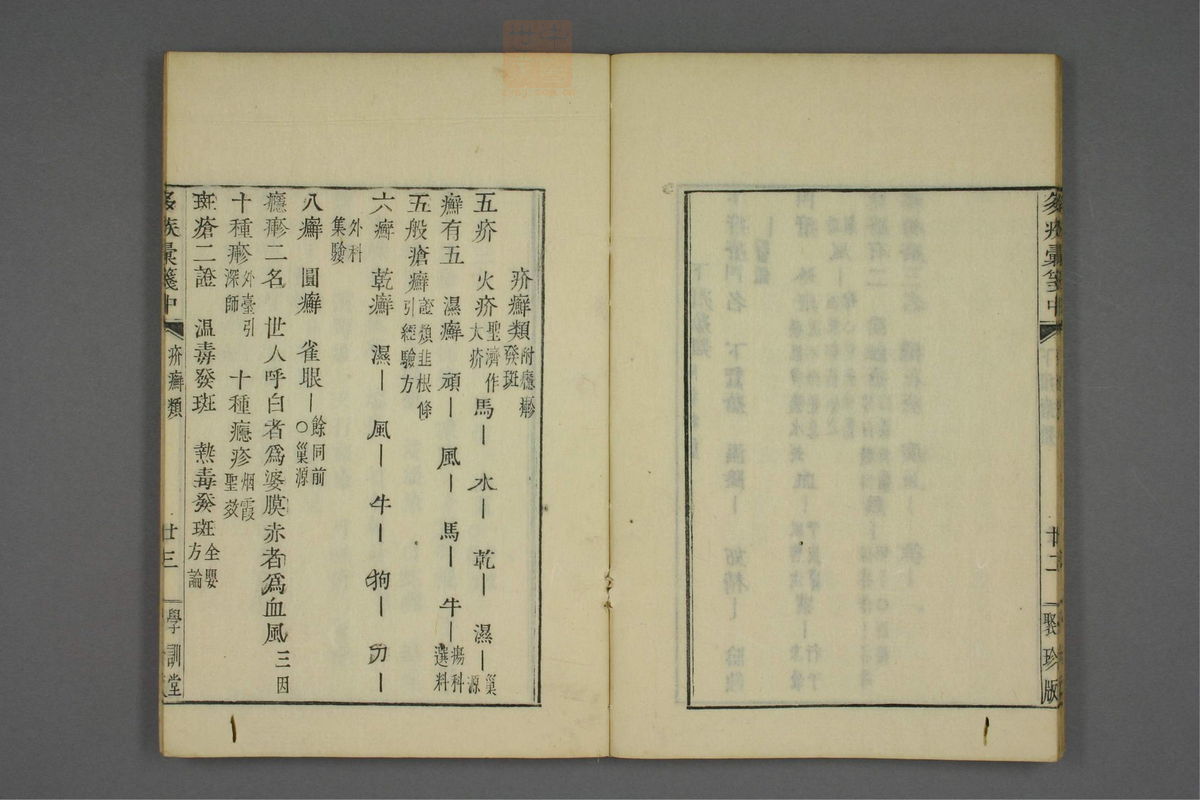 廿二
聚珍版
疥癬類 附癮𤺋發斑
五疥 火疥 聖濟作大疥 馬— 水— 乾— 濕— 巢源
癬有五 濕癬 頑— 風— 馬— 牛— 瘍科選粹
五般瘡癬 證類韭根條引經驗方
六癬 乾癬 濕— 風— 牛— 狗— 刃—
外科集驗
八癬 圓癬 雀眼— 餘同前○巢源
癮疹二名 世人呼白者爲婆膜赤者爲血風 三因
十種㾦 外臺引深師 十種癮疹 烟霞聖效
斑瘡二證 温毒發斑 熱毒發斑 全嬰方論
疥癬類
廿三
學訓堂